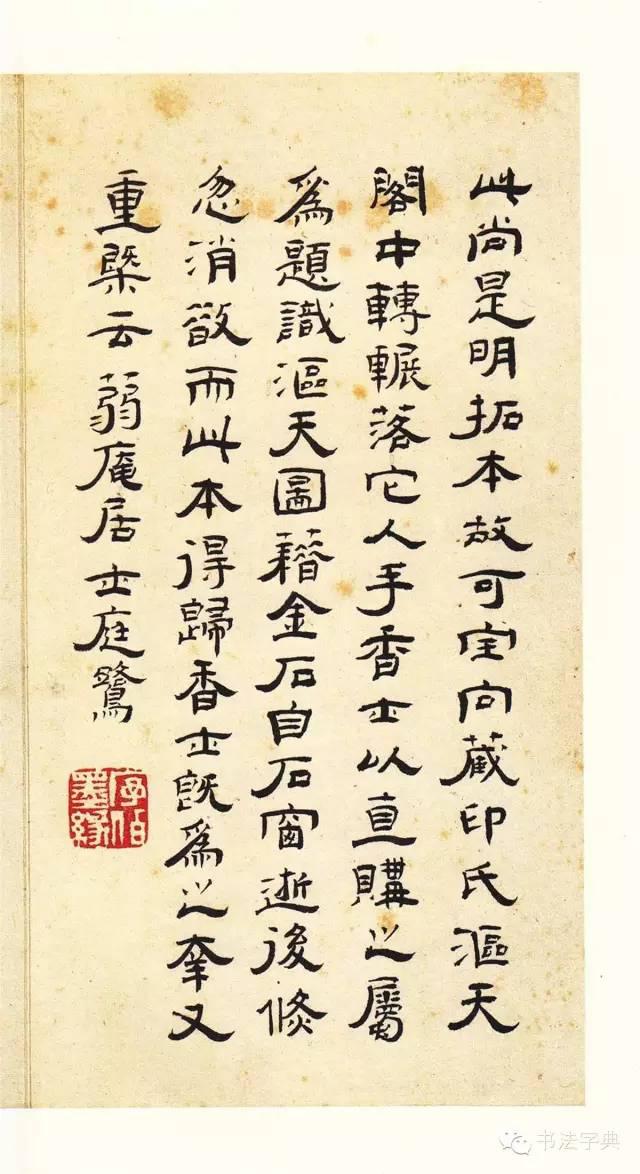 此尚是明拓本故可宝向藏印氏漚天
閣中轉輾落它人手香士以直購之屬
爲題識漚天圖藉金石自石窗逝後倏
忽消散而此本得歸香士既爲之幸又
重槩云蒻庵居士庭鷺
序伯墨緣
书法字典